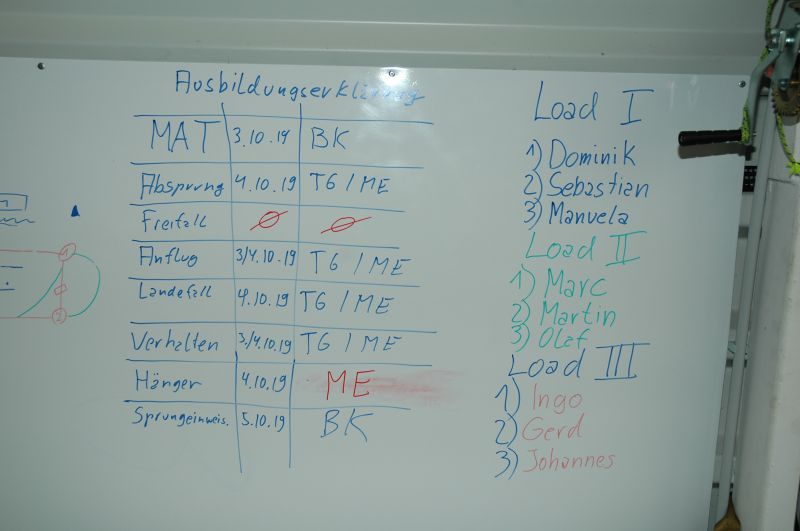 Ausbildungserklärung
MAT 3.10.19 BK
Absprung 4.10.19 TG / ME
Freifall Ø Ø
Anflug 3/4.10.19 TG / ME
Landefall 4.10.19 TG / ME
Verhalten 3/4.10.19 TG / ME
Hänger 4.10.19 ME
Sprungeinweis. 5.10.19 BK
Load I
1) Dominik
2) Sebastian
3) Manuela
Load II
1) Marc
2) Martin
3) Olaf
Load III
1) Ingo
2) Gerd
3) Johannes
1
2